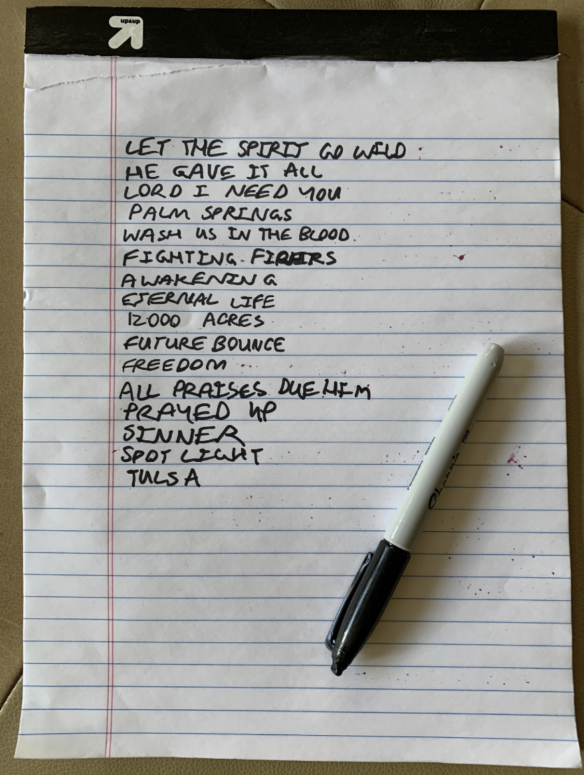 up&up
LET THE SPIRIT GO WILD
HE GAVE IT ALL
LORD I NEED YOU
PALM SPRINGS
WASH US IN THE BLOOD
FIGHTING FIRERS
AWAKENING
ETERNAL LIFE
12000 ACRES
FUTURE BOUNCE
FREEDOM
ALL PRAISES DUE HIM
PRAYED UP
SINNER
SPOT LIGHT
TULSA
Sharpie